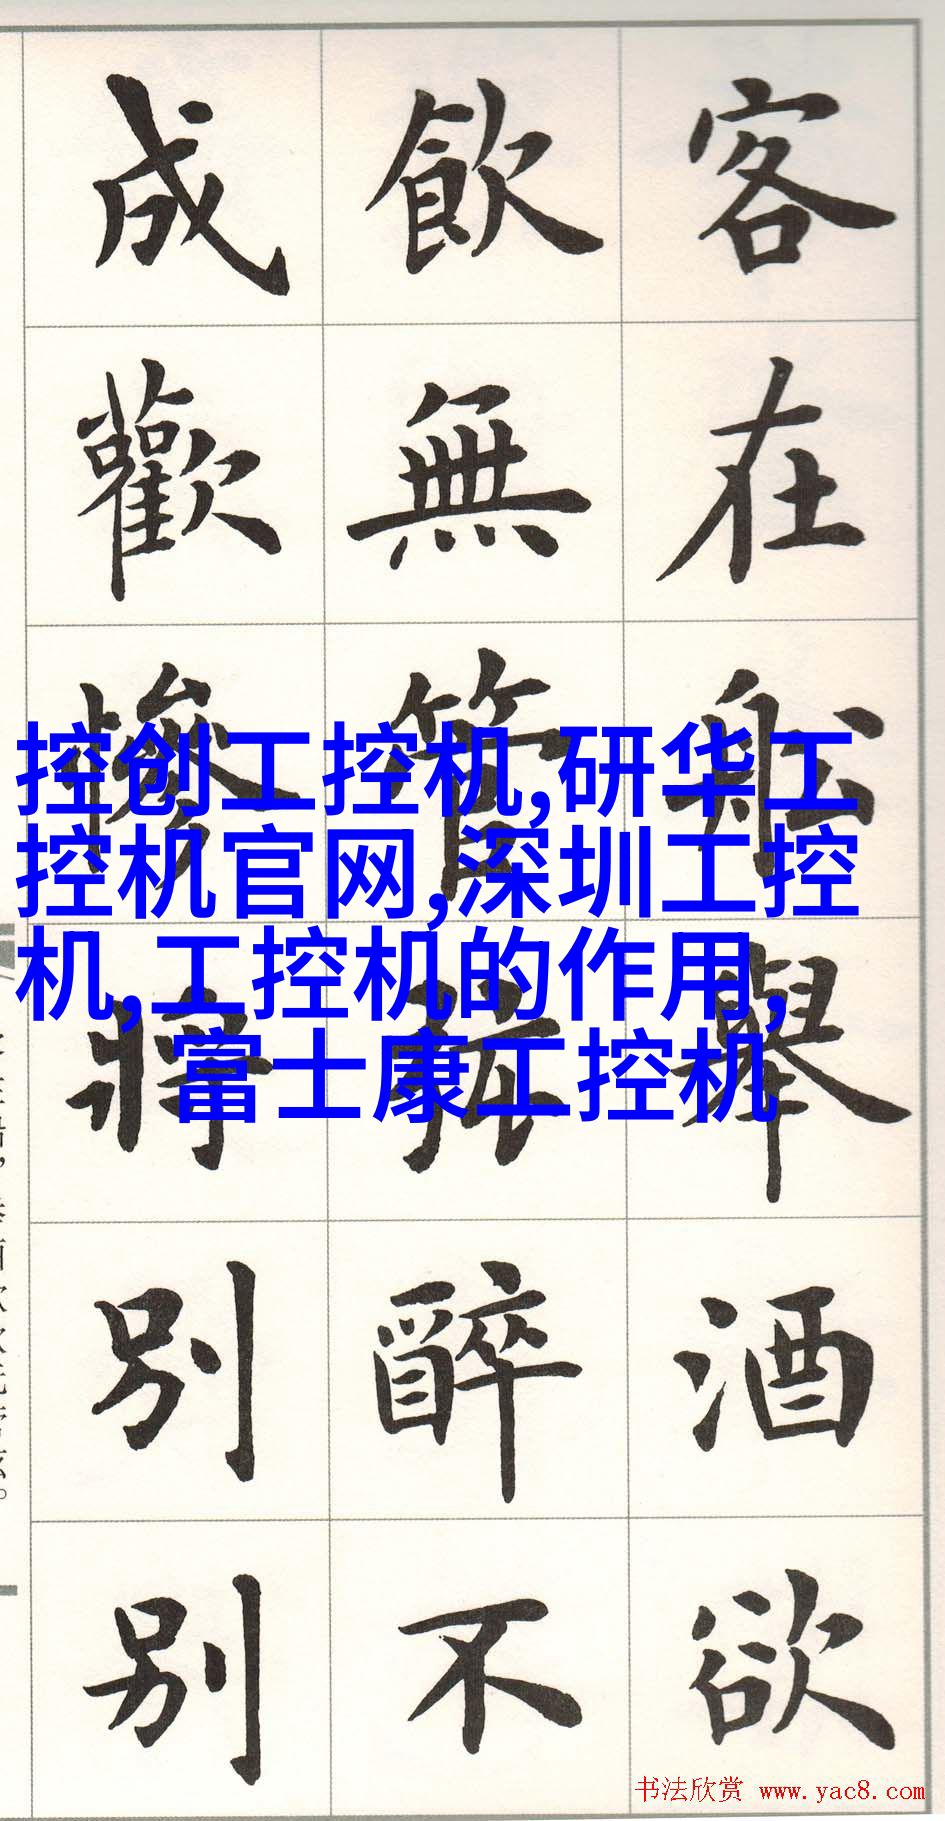 客在舩舉酒欲
飲無管弦醉不
成歡慘將別別
控创工控机,研华工
控机官网,深圳工控
机,工控机的作用,
富士康工控机
书法欣赏 www.yac8.com